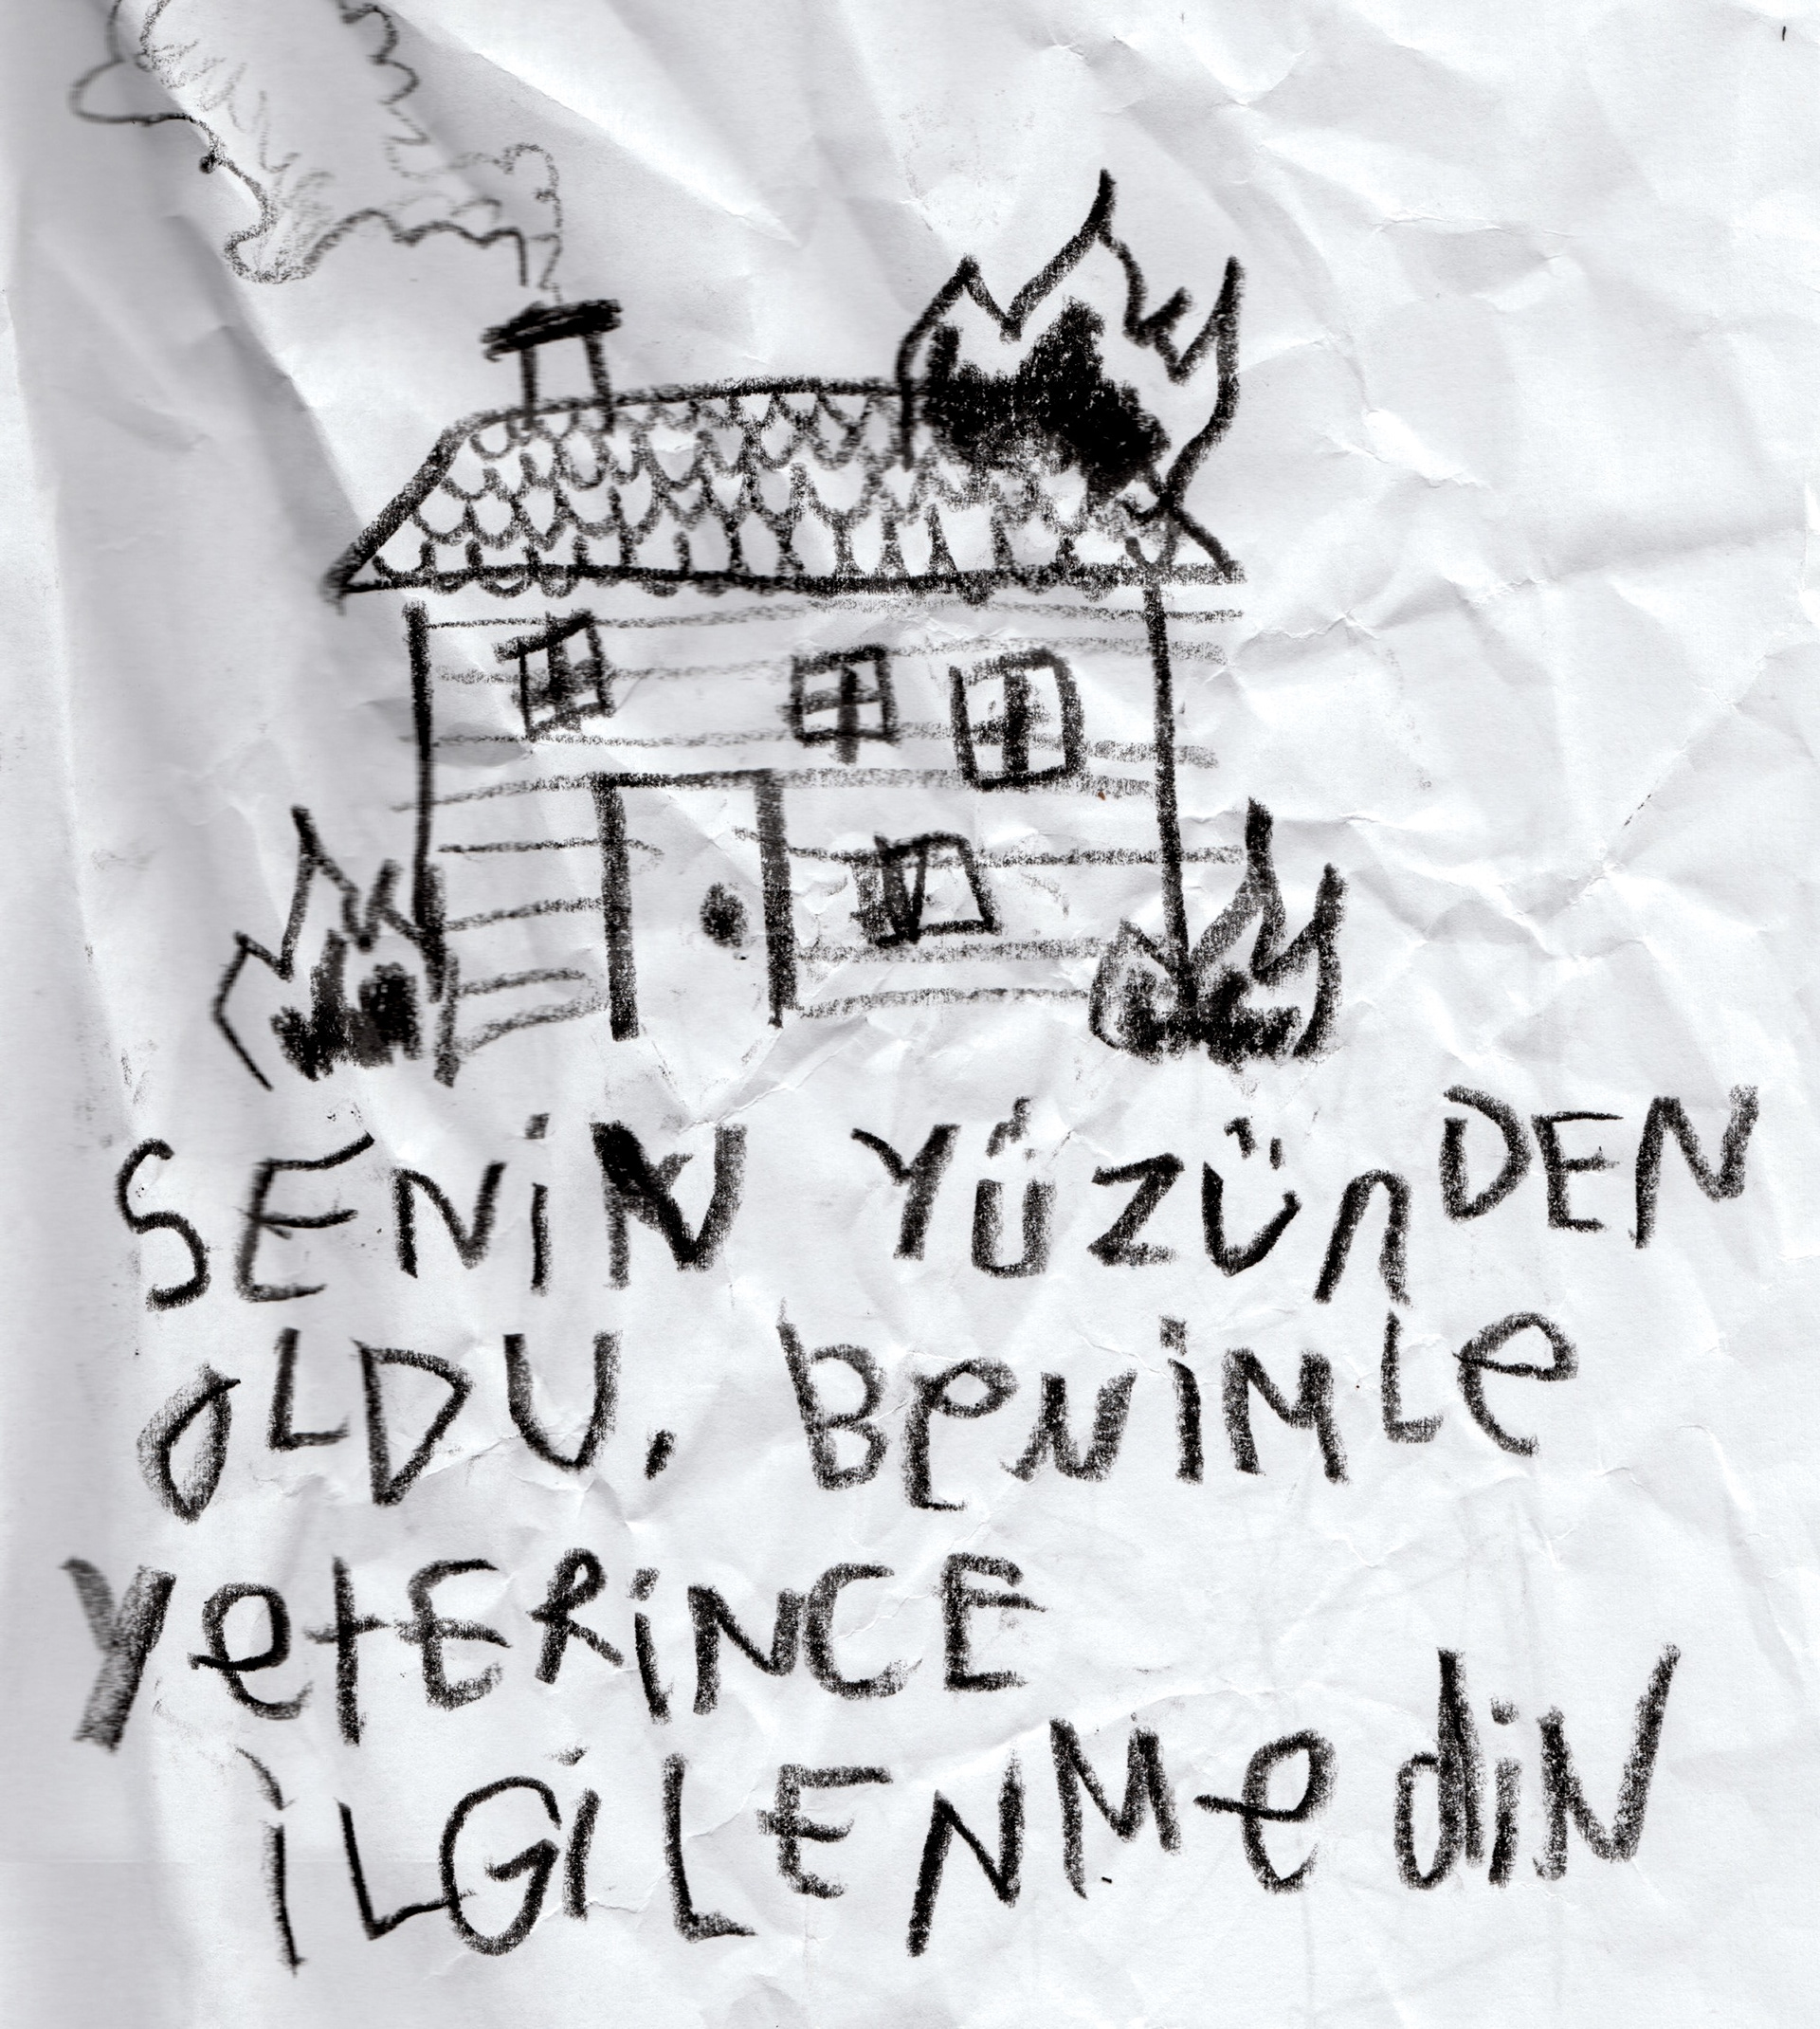 SENİN YÜZÜnDEN
OLDU. BenİMLe
YetERİNCE
İLGİLENMediN